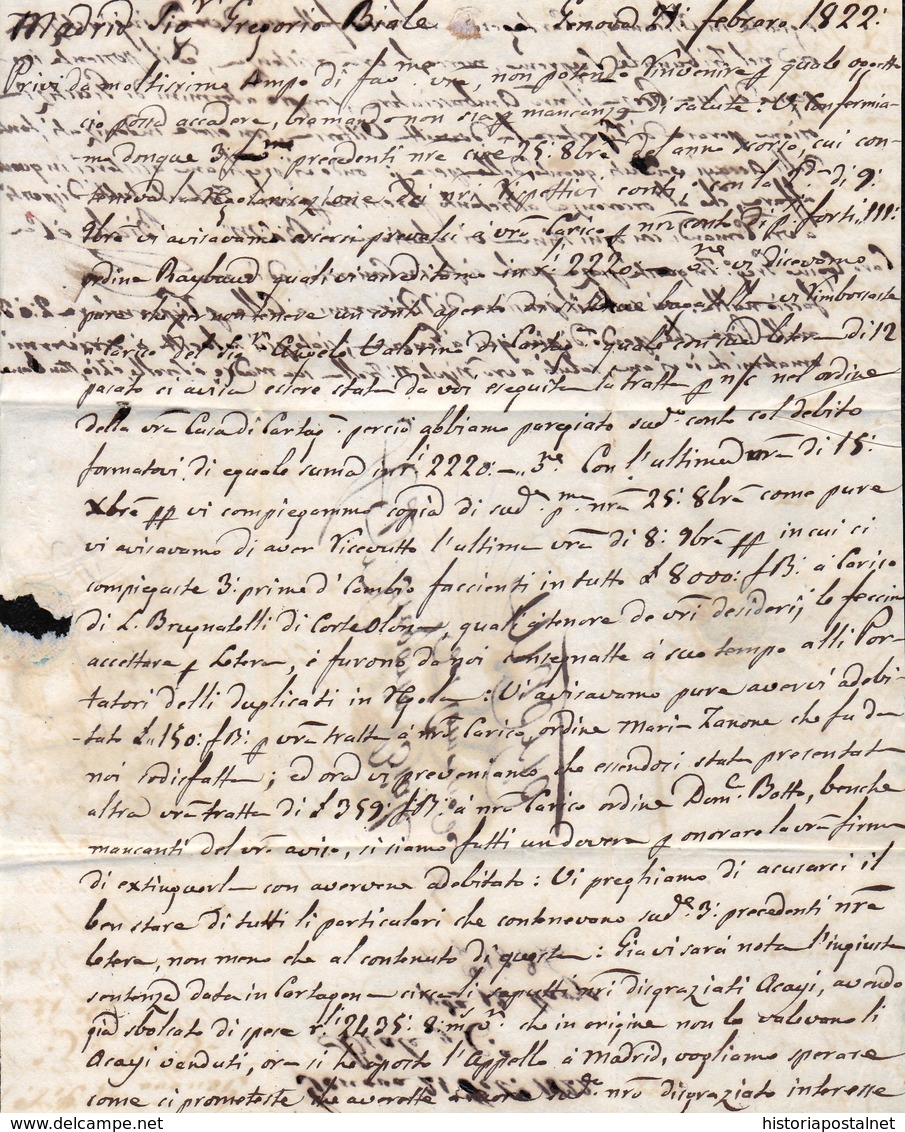 Madrid Sigr Gregorio Biale Genova 21 febraro 1822:
Privi da moltissimo tempo di favma vra, non potendo rinvenire p quale oggetto
ciò possa accadere, bramando non sia p mancanza di salute: Vi confermia-
mo donque 3: precedenti nre cioè 25: 8bre del anno scorso, cui con-
la Regolarizazione dei nri rispettivi conti; con la di 9:
9bre vi avisavamo essersi prevalsi à vro Carico p nro conto di p forti 111:
ordine Raybaud quali vi accreditamo in r 2220 vi dicevamo
pure che non tenere un conto aperto vi rimborsaste
à Carico del Sigr Angelo Valarino di Cartag quale con sua letera di 12
pasato ci avisa essere stata da voi eseguita la tratta p n/c nel ordine
della vra Casa di Cartag. perciò abbiamo paregiato sudo conto col debito
formatovi di eguale suma in r 2220: Con l'ultima nra di 15:
Xbre pp vi compiegammo copia di suda pma nra 25: 8bre come pure
vi avisavamo di aver riccevutto l'ultima vra di 8: 9bre pp in cui ci
compiegaste 3: prime d' Cambio faccienti in tutto £ 8000: f.B: à Carico
di L. Brugnatelli di Corte Olona, quali à tenore de vri desiderj, le feccimo
accettare p Letera, e furono da noi consegnatte à suo tempo alli Por-
tatori delli duplicati in Regola: Vi avisavamo pure avervi adebi-
-tato £ 150: f.B: p vra tratta à nro Carico, ordine Maria Zanone che fu da
noi sodisfatta; ed ora vi preveniamo, che essendoci stata presentata
altra vra tratta di £ 359: f.B: à nro Carico ordine Domco Botto, benche
mancanti del vro aviso, si siamo fatti un dovere p onorare la vra firma
di extinguerla con avervene adebitato: Vi preghiamo di acusarci il
ben stare di tutti li particolari che contenevano sude 3: precedenti nre
letere, non meno che al contenuto di questa: Gia vi sarà nota l'ingiusta
sentenza data in Cartagena circa li saputti nri disgraziati Acayi, avendo
già sbolsato di spese r 2435: 8: m v. che in origine non lo valevano li
Acayi venduti, ora si ha aposto l'Appello à Madrid, vogliamo sperare
come ci prometeste che averette à core sudo nro disgraziato interesse
historiapostalnet